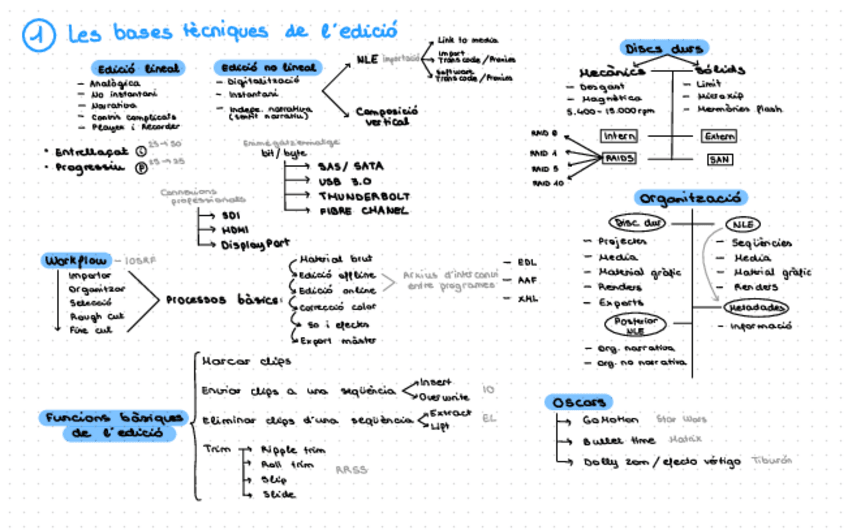 1 Les bases tècniques de l'edició
Edició lineal
- Analògica
- No instantani
- Narrativa
- Canvis complicats
- Player i Recorder
Edició no lineal
- Digitalització
- Instantani
- Indepe. narrativa
(sentit narratiu)
NLE importació
Link to media
Import
Transcode/Proxies
Software
Transcode/Proxies
Composició
vertical
• Entrellaçat i 25→50
• Progressiu P 25→25
bit/byte
SAS/ SATA
USB 3.0
THUNDERBOLT
FIBRE CHANEL
Connexions
professionals
SDI
HDMI
DisplayPort
Discs durs
Mecànics
- Desgast
- Magnètica
5.400-15.000rpm
Sòlids
- Limit
- Microxip
- Memòries flash
Intern
Extern
RAIDS
SAN
RAID 0
RAID 1
RAID 5
RAID 10
Organització
Disc dur
- Projectes
- Media
- Material gràfic
- Renders
- Exports
NLE
- Seqüències
- Media
- Material gràfic
- Renders
Metadades
- Informació
Posterior
NLE
- Org. narrativa
- Org. no narrativa
Workflow - IOSRF
Importar
Organitzar
Selecció
Rough cut
Fine cut
Processos bàsics:
Material brut
Edició offline
Edició online
Correcció color
So i efectes
Export màster
Arxius d'intercanvi
entre programes
- EDL
- AAF
- XML
Funcions bàsiques
de l'edició
Marcar clips
Enviar clips a una seqüència
Insert
Overwrite
IO
Eliminar clips d'una seqüència
Extract
Lift
EL
Trim
Ripple trim
Roll trim
Slip
Slide
RRSS
Oscars
Go Motion Star Wars
Bullet time Matrix
Dolly zom / efecto vértigo Tiburón